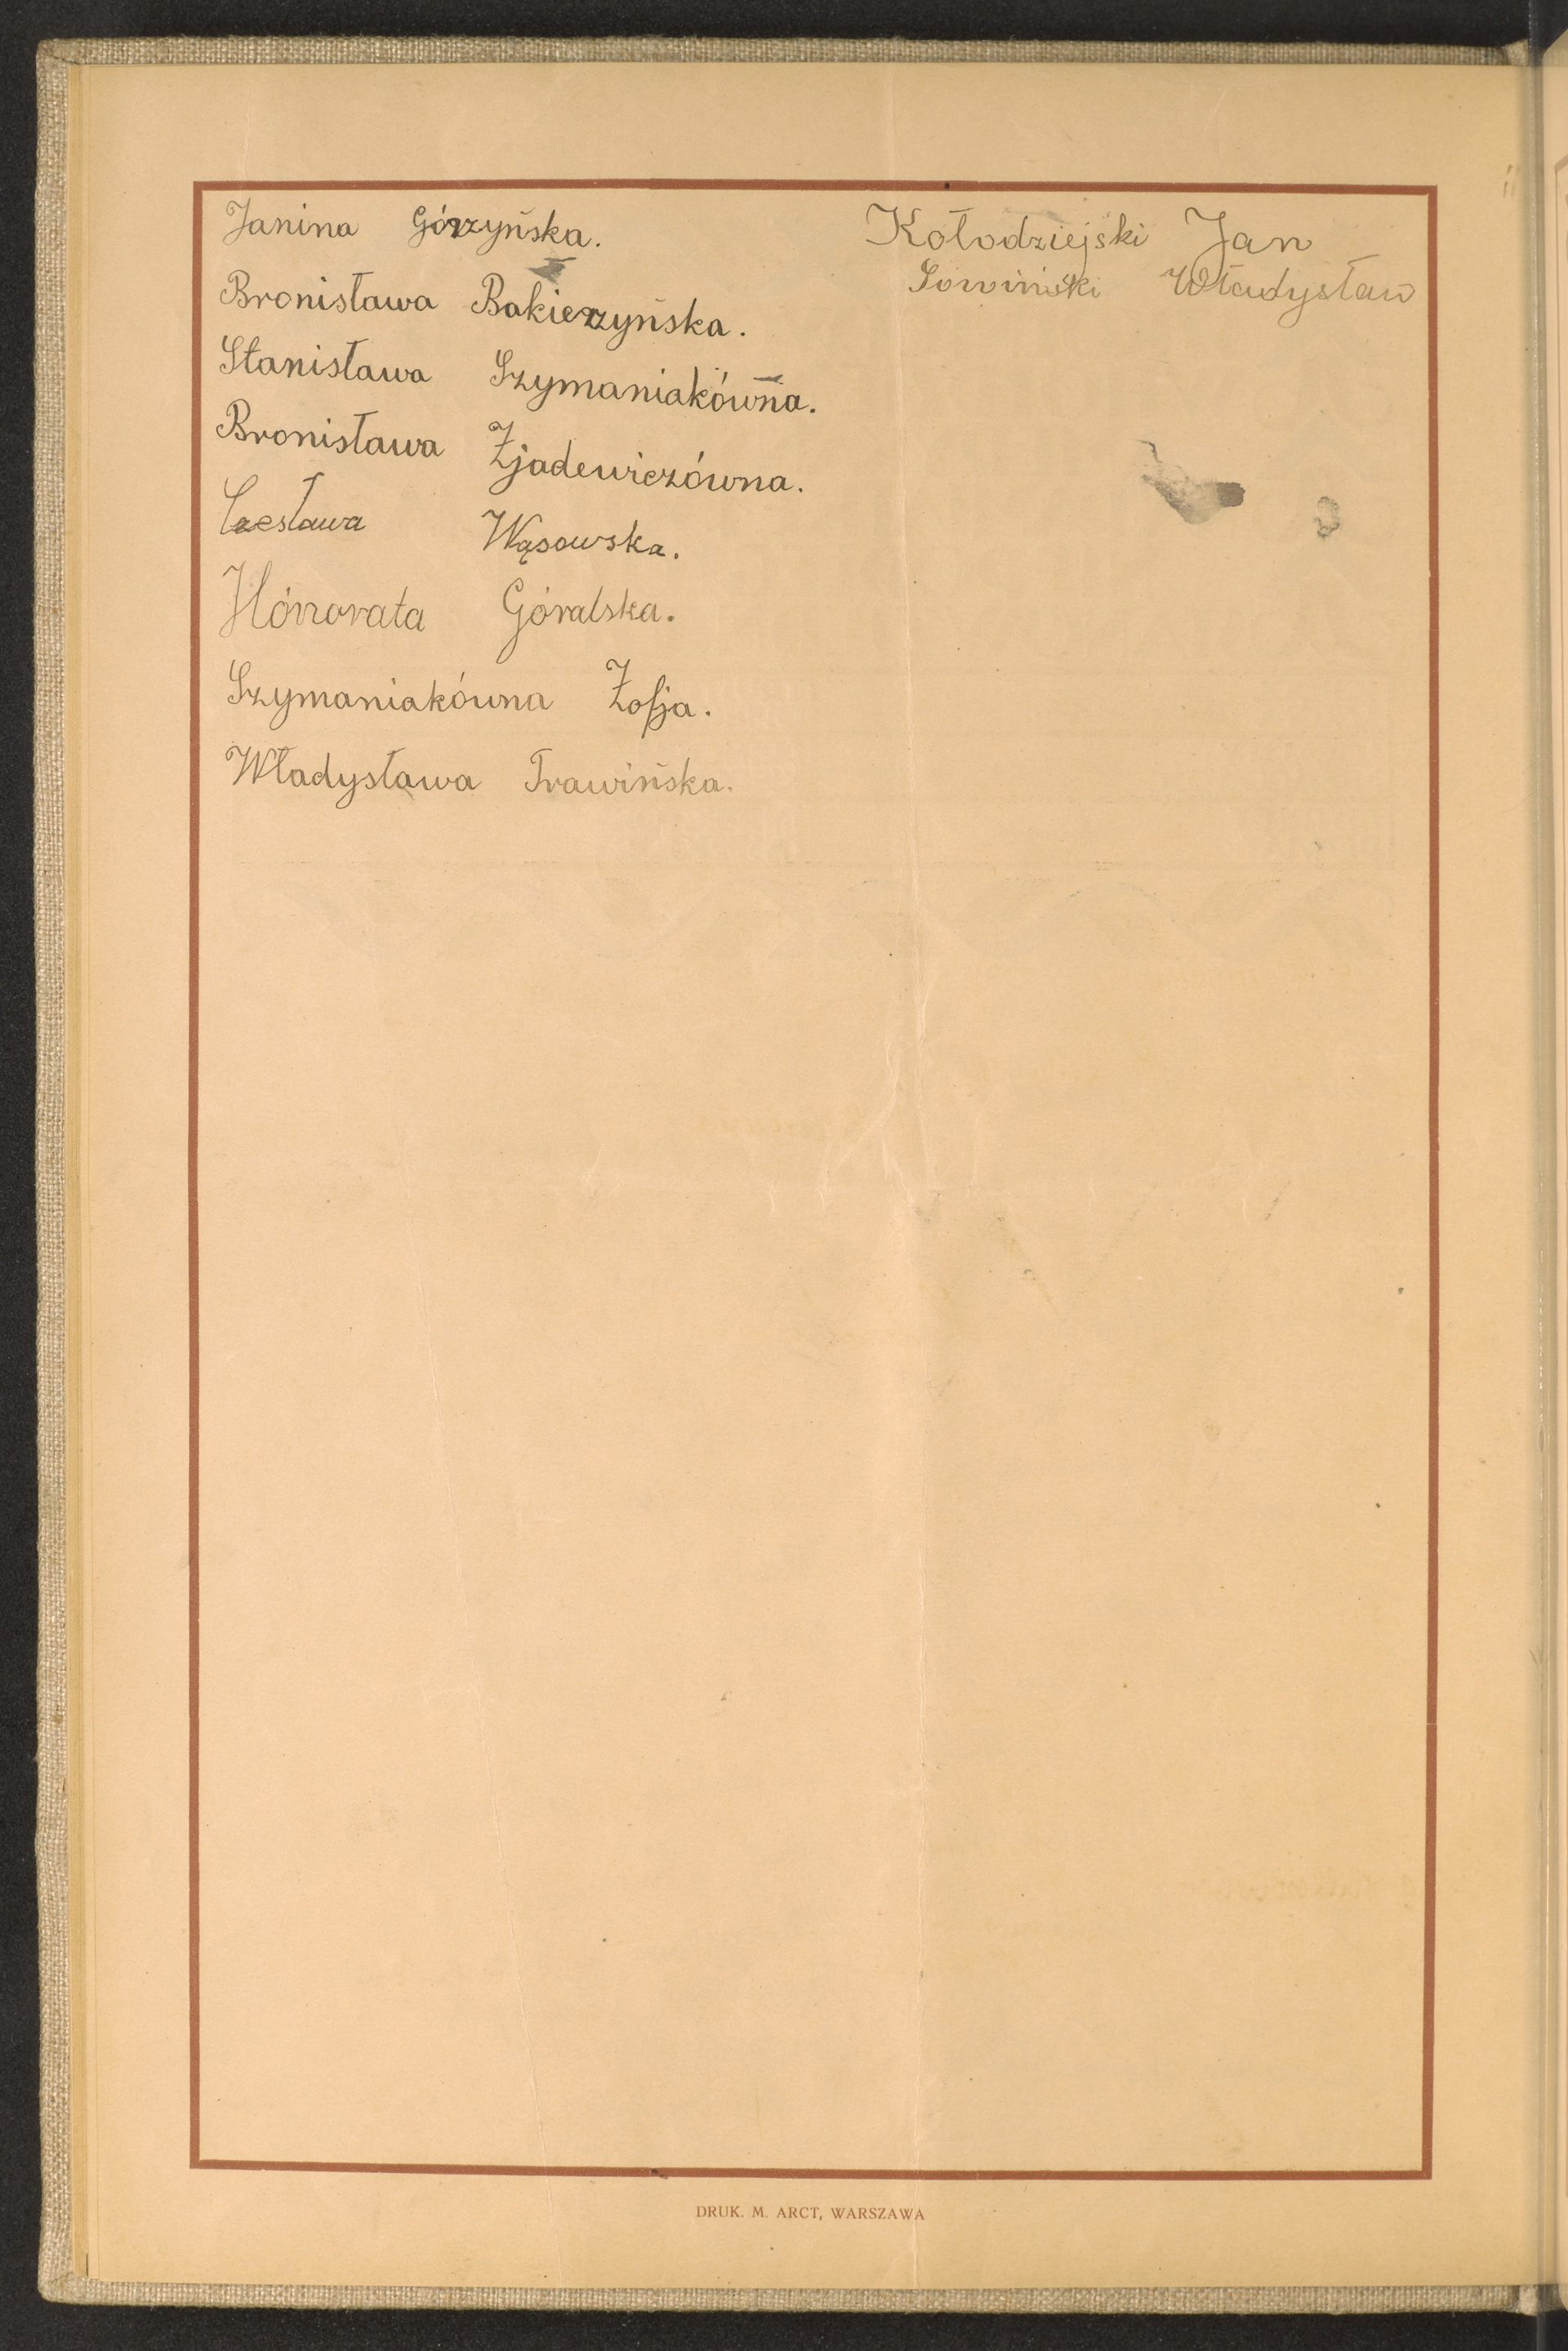 Janina Górzyńska.
Bronisława Bakierzyńska.
Stanisława Szymaniakówna.
Bronisława Zjadewiczówna.
Czesława Wąsowska.
Hónorata Góralska.
Szymaniakówna Zofja.
Władysława Trawińska.
Kołodziejski Jan
Sowiński Władysław
DRUK. M. ARCT, WARSZAWA